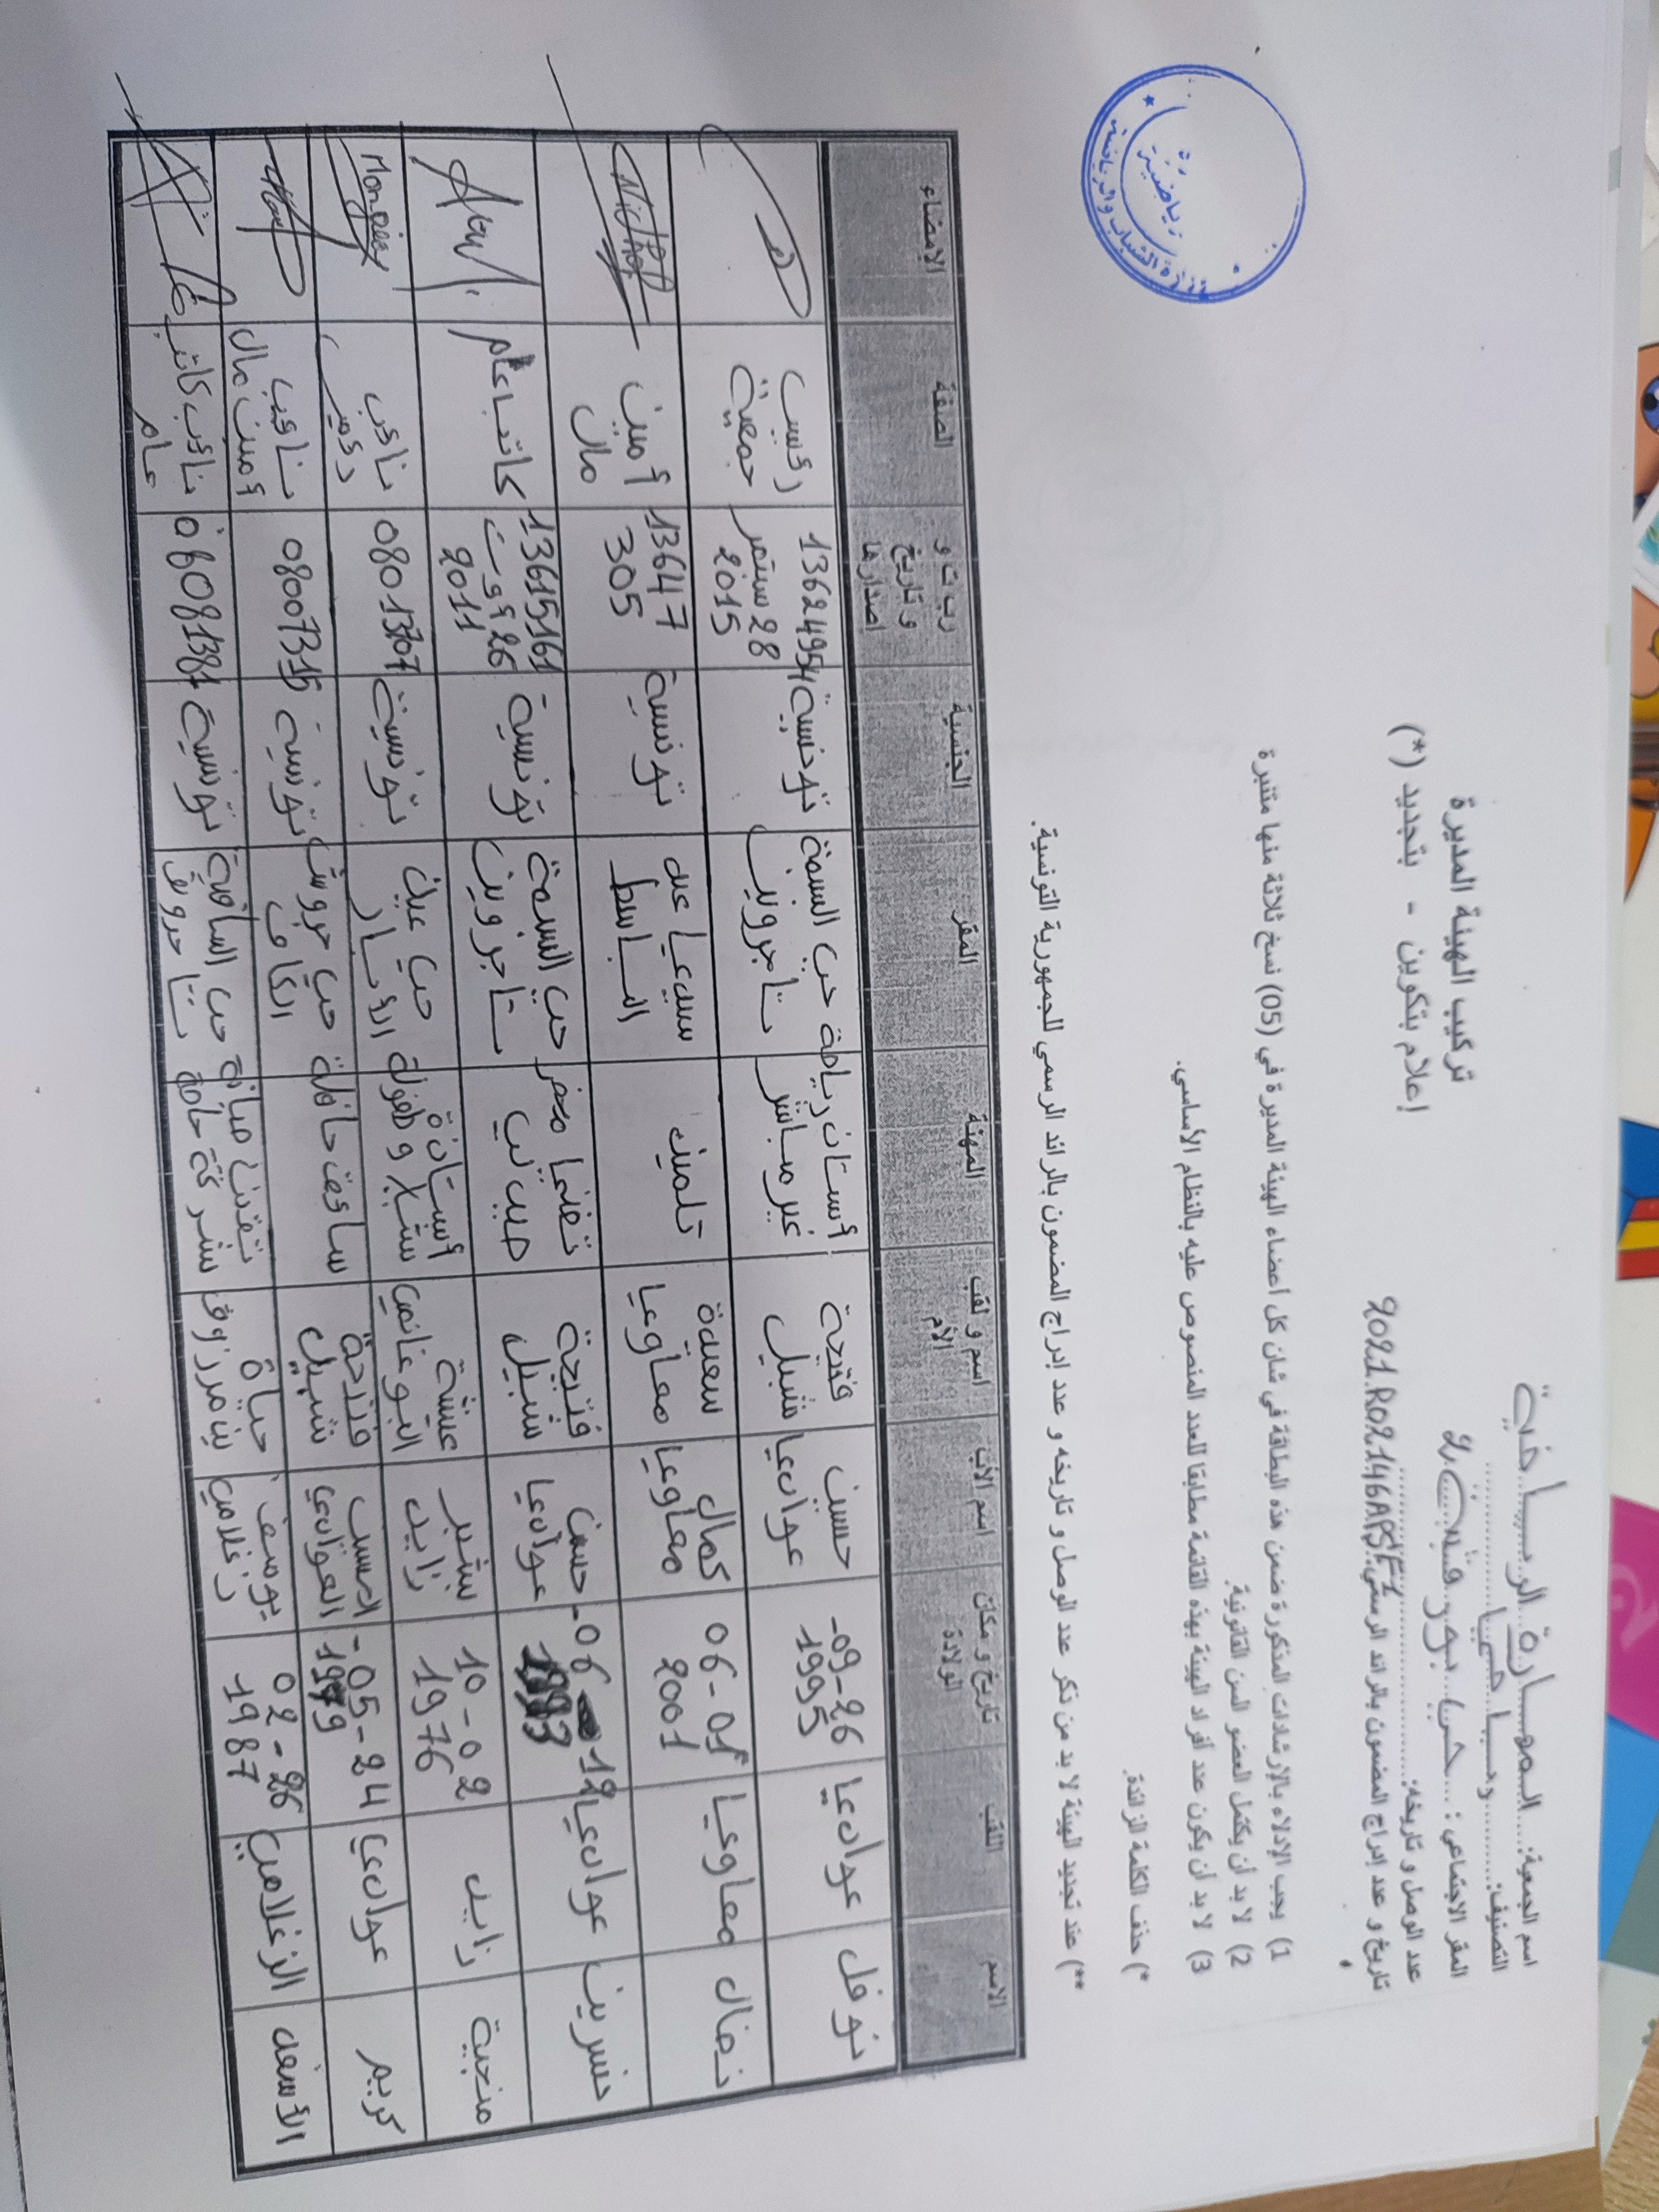 اسم الجمعية: المهارة الرياضية
التصنيف: رياضيا
المقر الاجتماعي: حي بورقيبة 2
عدد الوصل و تاريخه:
تاريخ و عدد إدراج المضمون بالرائد الرسمي: 2021R02146APSF1
تركيب الهيئة المديرة
إعلام بتكوين - بتجديد (*)
1) يجب الإدلاء بالإرشادات المذكورة ضمن هذه البطاقة في شأن كل أعضاء الهيئة المديرة في (05) نسخ ثلاثة منها متنبرة
2) لا بد أن يكتمل العضو السن القانونية.
3) لا بد أن يكون عدد أفراد الهيئة بهذه القائمة مطابقا للعدد المنصوص عليه بالنظام الأساسي.
*) حذف الكلمة الزائدة.
**) عند تجديد الهيئة لا بد من ذكر عدد الوصل و تاريخه و عدد إدراج المضمون بالرائد الرسمي للجمهورية التونسية.
الاسم اللقب تاريخ و مكان الولادة اسم الأب اسم و لقب الأم المهنة المقر الجنسية ر ب ت و و تاريخ إصدارها الصفة الإمضاء
نوفل عوادي 26-09-1995 حسين عوادي فتيحة شبيل أستاذ رياضة غير مباشر حي النسمة تاجروين تونسية 13624954 28 سبتمبر 2015 رئيس جمعية
نضال معاويا 01-06-2001 كمال معاويا سعيدة معاويا تلميذ سيدي عبد الباسط تونسية 13647305 أمين مال Nidhal
نسرين عوادي 12-06-1993 حسين عوادي فتيحة شبيل حي النسمة تاجروين تونسية 13615161 26 أوت 2011 كاتب عام
منجية زايد 02-10-1976 بشير زايد عيشة البوغانمي أستاذة شباب وطفولة حي عين تونسية 08013707 نائب رئيس Mongia
كريم عوادي 24-05-1979 العوادي شبيل سائق حافلة حي الكاف تونسية 08007315 نائب أمين مال
الأسعد الزغلامي 26-02-1987 يوسف زغلامي حياة بن مرزوق تقني صيانة شركة خاصة حي الساقية تاجروين تونسية 06081381 نائب كاتب عام
وزارة الشباب والرياضة